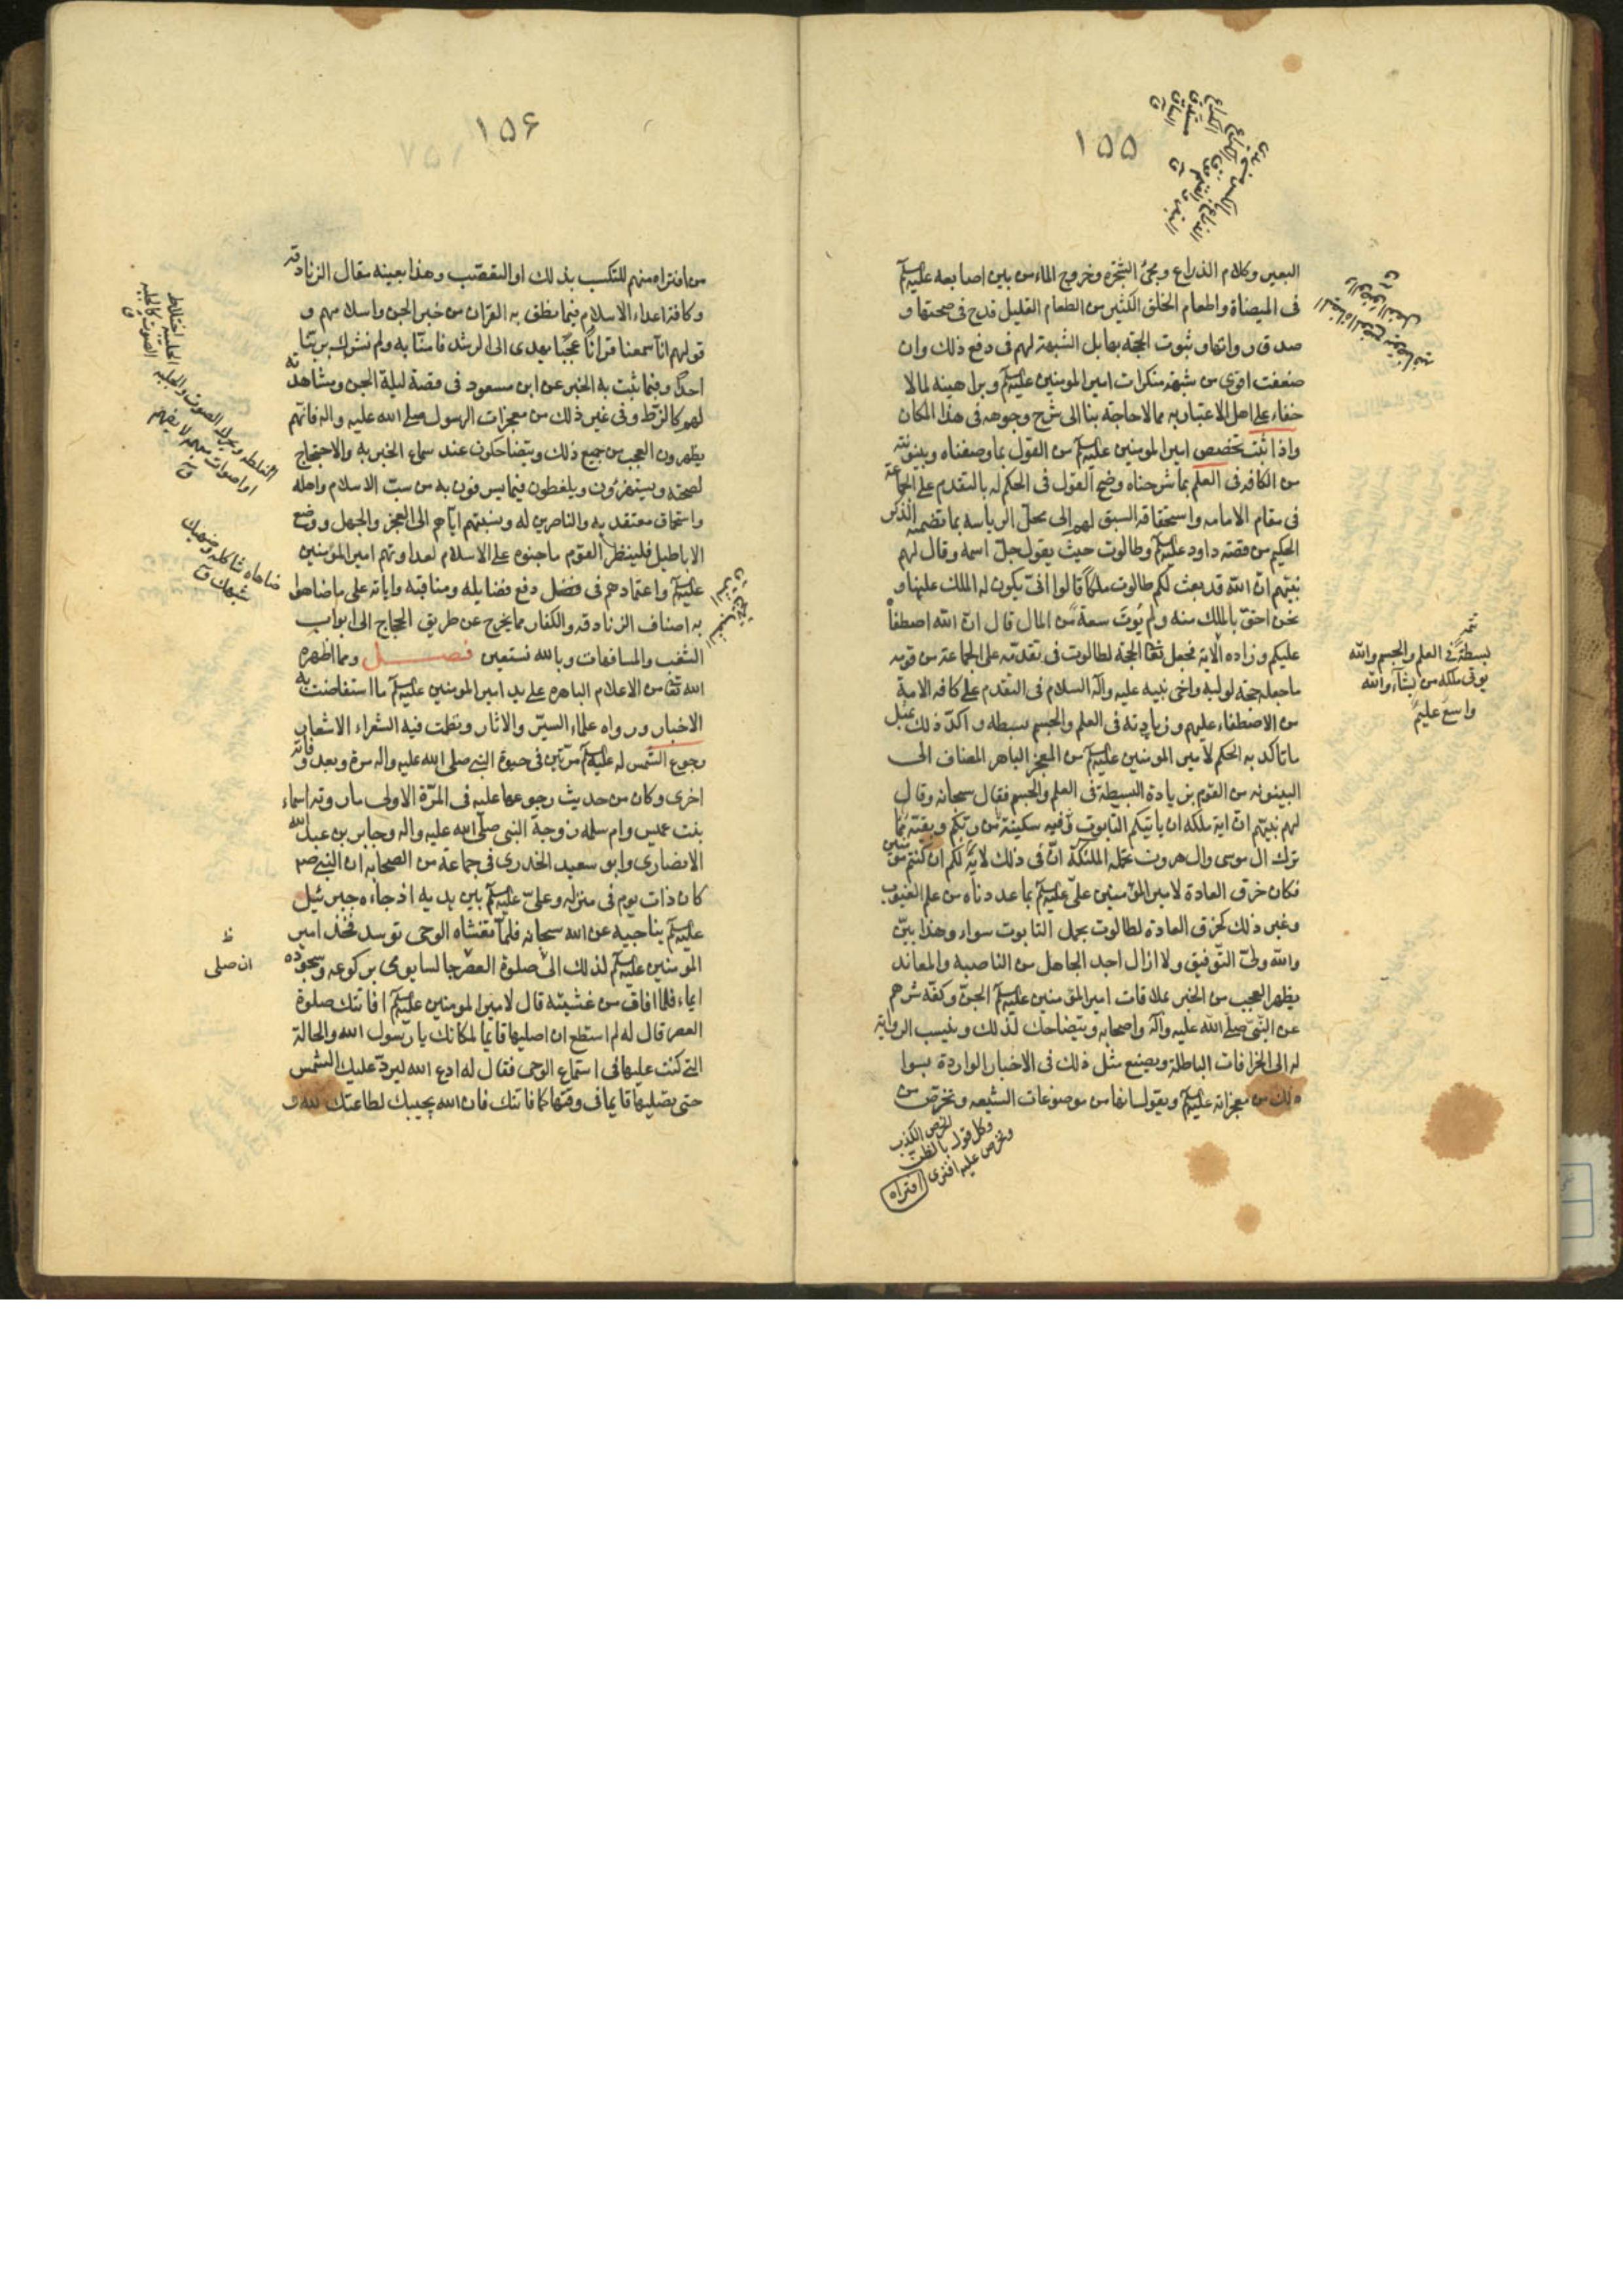 ١٥٥
البعير وكلام الذراع ومجئ الشجرة وخروج الماء من بين اصابعه عليه السلم
فى الميضاة واطعام الخلق الكثير من الطعام القليل قدح فى صحتها و
صدق رواتها وثبوت الحجة بها بل الشبهة لهم فى دفع ذلك وان
ضعفت اقوى من شبهة منكرات امير المومنين عليه السلم وبراهينه لما لا
خفاء على اهل الاعتبار به مما لا حاجة بنا الى شرح وجوهه فى هذا المكان
واذا ثبت تخصص امير المومنين عليه السلم من القوم بما وصفناه وبينونته
من الكافة فى العلم بما شرحناه وضح القول فى الحكم له بالتقدم على الجماعة
فى مقام الامامه واستحقاقه السبق لهم الى محل الرياسه بما تضمنه الذكر
الحكيم من قصة داود عليه السلم وطالوت حيث يقول جل اسمه وقال لهم
نبيهم ان الله قد بعث لكم طالوت ملكا قالوا انى يكون له الملك علينا و
نحن احق بالملك منه ولم يؤت سعة من المال قال ان الله اصطفاه
عليكم وزاده الاية فجعل تعالى الحجة لطالوت فى تقدمه على الجماعة من قومه
ما جعله حجة لوليه واخى نبيه عليه وآله السلام فى التقدم على كافة الامة
من الاصطفاء عليهم وزيادته فى العلم والجسم بسطه واكد ذلك بمثل
ما تاكد به الحكم لامير المومنين عليه السلم من المعجز الباهر المضاف الى
البينونه من القوم بزيادة البسطة فى العلم والجسم فقال سبحانه وقال
لهم نبيهم ان اية ملكه ان ياتيكم التابوت فيه سكينة من ربكم وبقية مما
ترك ال موسى وال هرون تحمله الملئكة ان فى ذلك لاية لكم ان كنتم مؤمنين
فكان خرق العادة لامير المؤمنين على عليه السلم بما عددناه من علم الغيوب
وغير ذلك كخرق العادة لطالوت بحمل التابوت سواء وهذا بين
والله ولى التوفيق ولا ازال اجد الجاهل من الناصبه والمعاند
يظهر العجب من الخبر بملاقات امير المؤمنين عليه السلم الجن وكفه شرهم
عن النبى صلى الله عليه وآله واصحابه ويتضاحك لذلك وينسب الرواية
له الى الخرافات الباطلة ويصنع مثل ذلك فى الاخبار الواردة بسوا
ذلك من معجزاته عليه السلم ويقول انها من موضوعات الشيعه وتخرص من
تتمة
بسطة فى العلم والجسم والله
يوتى ملكه من يشآء والله
واسع عليم
تخرص الكذب
وكل قول بالظن
وتخرص عليه افترى
افتراه
١٥٦
من افتراه منهم للتكسب بذلك او التعصب وهذا بعينه مقال الزنادقه
وكافة اعداء الاسلام فيما نطق به القران من خبر الجن واسلامهم و
قولهم انا سمعنا قرانا عجبا يهدى الى الرشد فامنا به ولم نشرك بربنا
احدا وفيما ثبت به الخبر عن ابن مسعود فى قصة ليلة الجن ومشاهدته
لهم كالزط وفى غير ذلك من معجزات الرسول صلى الله عليه واله فانهم
يظهرون العجب من جميع ذلك ويتضاحكون عند سماع الخبر به والاحتجاج
لصحته ويستهزؤن ويلغطون فيما يسرفون به من سب الاسلام واهله
واستحماق معتقديه والناصرين له ونسبتهم اياهم الى العجز والجهل ووضع
الاباطيل فلينظر القوم ما جنوه على الاسلام لعداوتهم امير المؤمنين
عليه السلم واعتمادهم فى دفع فضايله ومناقبه واياته على ما ضاهوا
به اصناف الزنادقه والكفار مما يخرج عن طريق الحجاج الى ابواب
الشغب والمسافهات وبالله نستعين فصل ومما اظهره
الله تعالى من الاعلام الباهره على يد امير المومنين عليه السلم ما استفاضت به
الاخبار ورواه علماء السير والاثار ونظمت فيه الشعراء الاشعار
رجوع الشمس له عليه السلم مرتين فى حيوة النبى صلى الله عليه واله مرة وبعد وفاته
اخرى وكان من حديث رجوعها عليه فى المرة الاولى ما روته اسماء
بنت عميس وام سلمه زوجة النبى صلى الله عليه واله وجابر بن عبد الله
الانصارى وابو سعيد الخدرى فى جماعة من الصحابه ان النبى صم
كان ذات يوم فى منزله وعلى عليه السلم بين يديه اذ جاءه جبرئيل
عليه السلم يناجيه عن الله سبحانه فلما تغشاه الوحى توسد فخذ امير
المومنين عليه السلم لذلك الى صلوة العصر جالسا يومى بركوعه وسجوده
ايماء فلما افاق من غشيته قال لامير المومنين عليه السلم افاتتك صلوة
العصر قال له لم استطع ان اصليها قايما لمكانك يا رسول الله والحالة
التى كنت عليها فى استماع الوحى فقال له ادع الله ليرد عليك الشمس
حتى تصليها قايما فى وقتها كما فاتتك فان الله يجيبك لطاعتك لله و
الجلبه اختلاط
الصوت كالجلبه
اللغط ويحرك الصوت والجلبه
او اصوات مبهمه لا تفهم
ق
ضاهاه شاكله وضهيك
شبهك ق
ظ
ان صلى